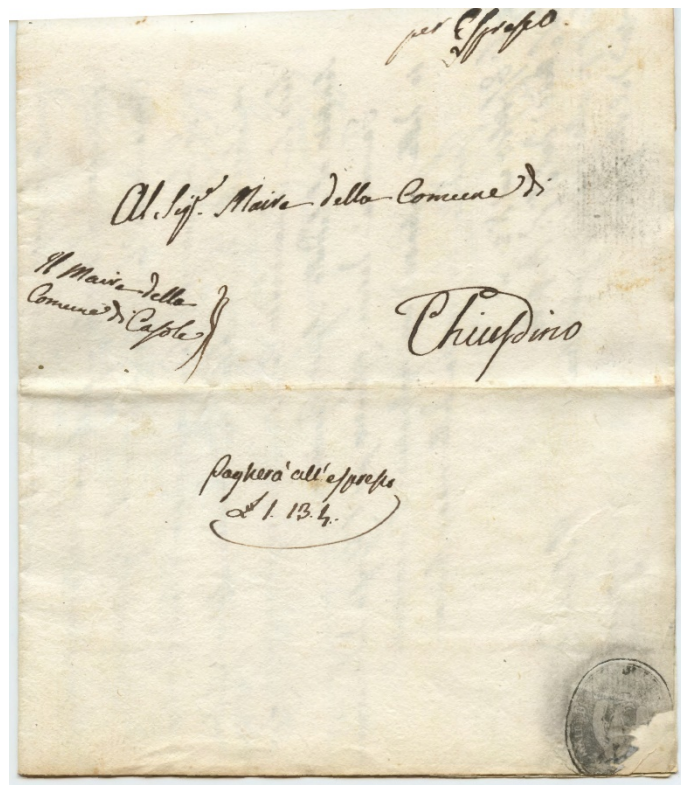 per Espresso.
Al Sig.r Maire della Comune di
Il Maire della
Comune di Casole
Chiusdino
Pagherà all'espresso
£ 1. 13. 4.